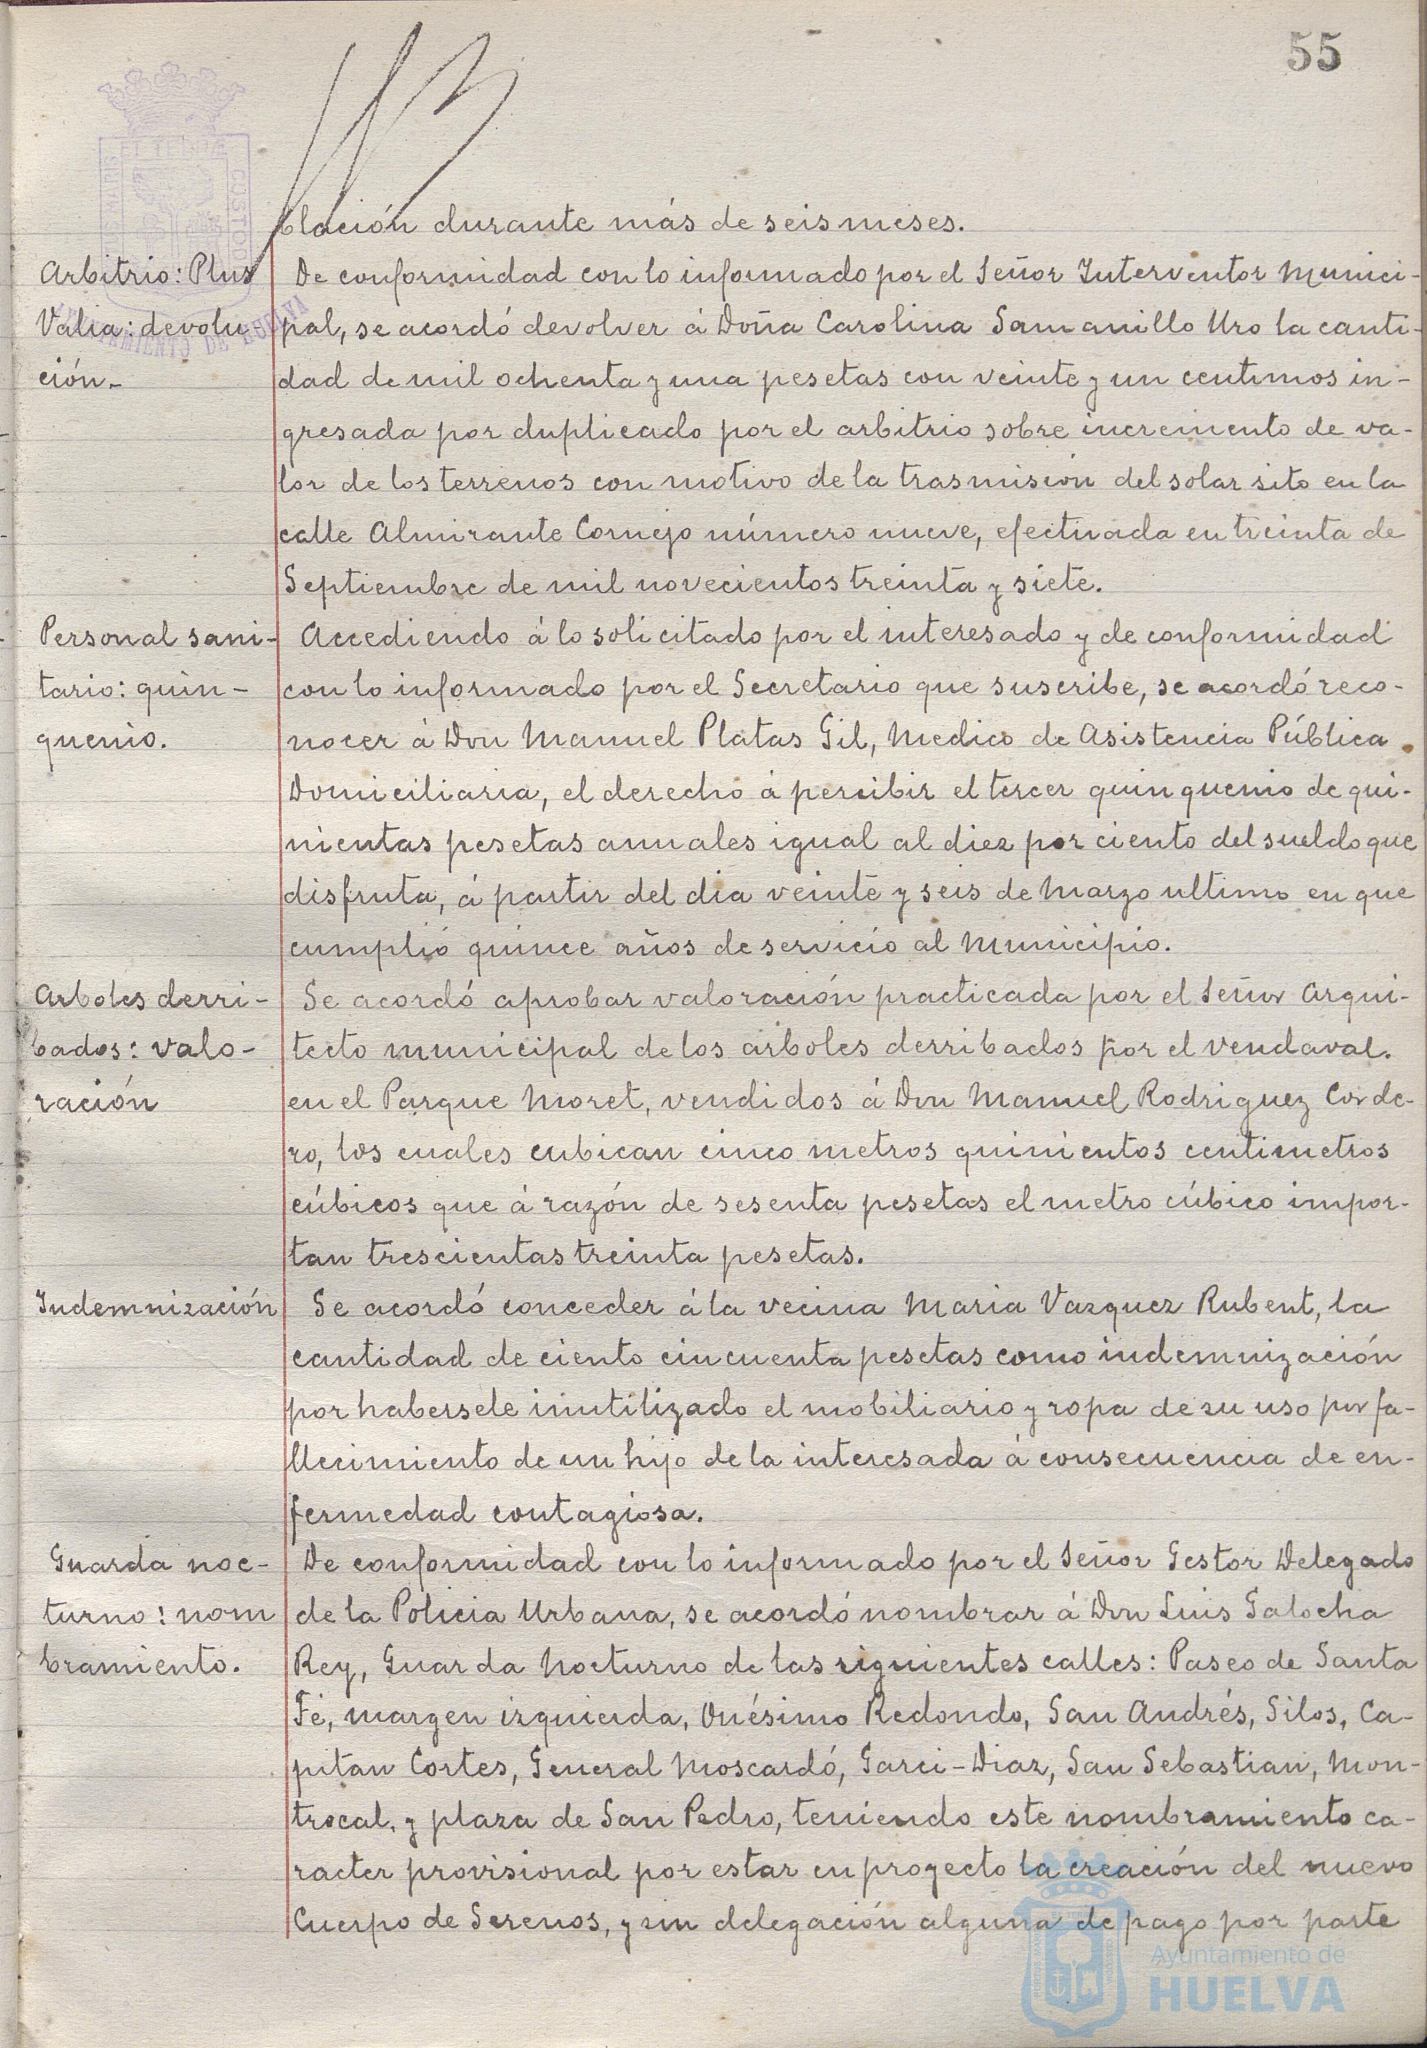 55
blación durante más de seis meses.
Arbitrio: Plus
Valia: devolu
ción-
De conformidad con lo informado por el Señor Interventor Munici-
pal, se acordó devolver á Doña Carolina Samanillo Uro la canti-
dad de mil ochenta y una pesetas con veinte y un centimos in-
gresada por duplicado por el arbitrio sobre incremento de va-
lor de los terrenos con motivo de la trasmisión del solar sito en la
calle Almirante Cornejo número nueve, efectuada en treinta de
Septiembre de mil novecientos treinta y siete.
Personal sani-
tario: quin-
quenio.
Accediendo á lo solicitado por el interesado y de conformidad
con lo informado por el Secretario que suscribe, se acordó reco-
nocer á Don Manuel Platas Gil, Medico de Asistencia Pública
Domiciliaria, el derecho á percibir el tercer quinquenio de qui-
nientas pesetas anuales igual al diez por ciento del sueldo que
disfruta, á partir del dia veinte y seis de Marzo ultimo en que
cumplió quince años de servicio al Municipio.
Arboles derri-
bados: valo-
ración
Se acordó aprobar valoración practicada por el Señor Arqui-
tecto municipal de los arboles derribados por el vendaval.
en el Parque Moret, vendidos á Don Manuel Rodriguez Corde-
ro, los cuales cubican cinco metros quinientos centimetros
cúbicos que á razón de sesenta pesetas el metro cúbico impor-
tan trescientas treinta pesetas.
Indemnización
Se acordó conceder á la vecina Maria Vazquez Rubent, la
cantidad de ciento cincuenta pesetas como indemnización
por habersele inutilizado el mobiliario y ropa de su uso por fa-
llecimiento de un hijo de la interesada á consecuencia de en-
fermedad contagiosa.
Guarda noc-
turno: nom
bramiento.
De conformidad con lo informado por el Señor Gestor Delegado
de la Policia Urbana, se acordó nombrar á Don Luis Galocha
Rey, Guarda Nocturno de las siguientes calles: Paseo de Santa
Fé, margen izquierda, Onésimo Redondo, San Andrés, Silos, Ca-
pitan Cortes, General Moscardó, Garci-Diaz, San Sebastian, Mon-
trocal, y plaza de San Pedro, teniendo este nombramiento ca-
racter provisional por estar en proyecto la creación del nuevo
Cuerpo de Serenos, y sin delegación alguna de pago por parte
Ayuntamiento de
HUELVA